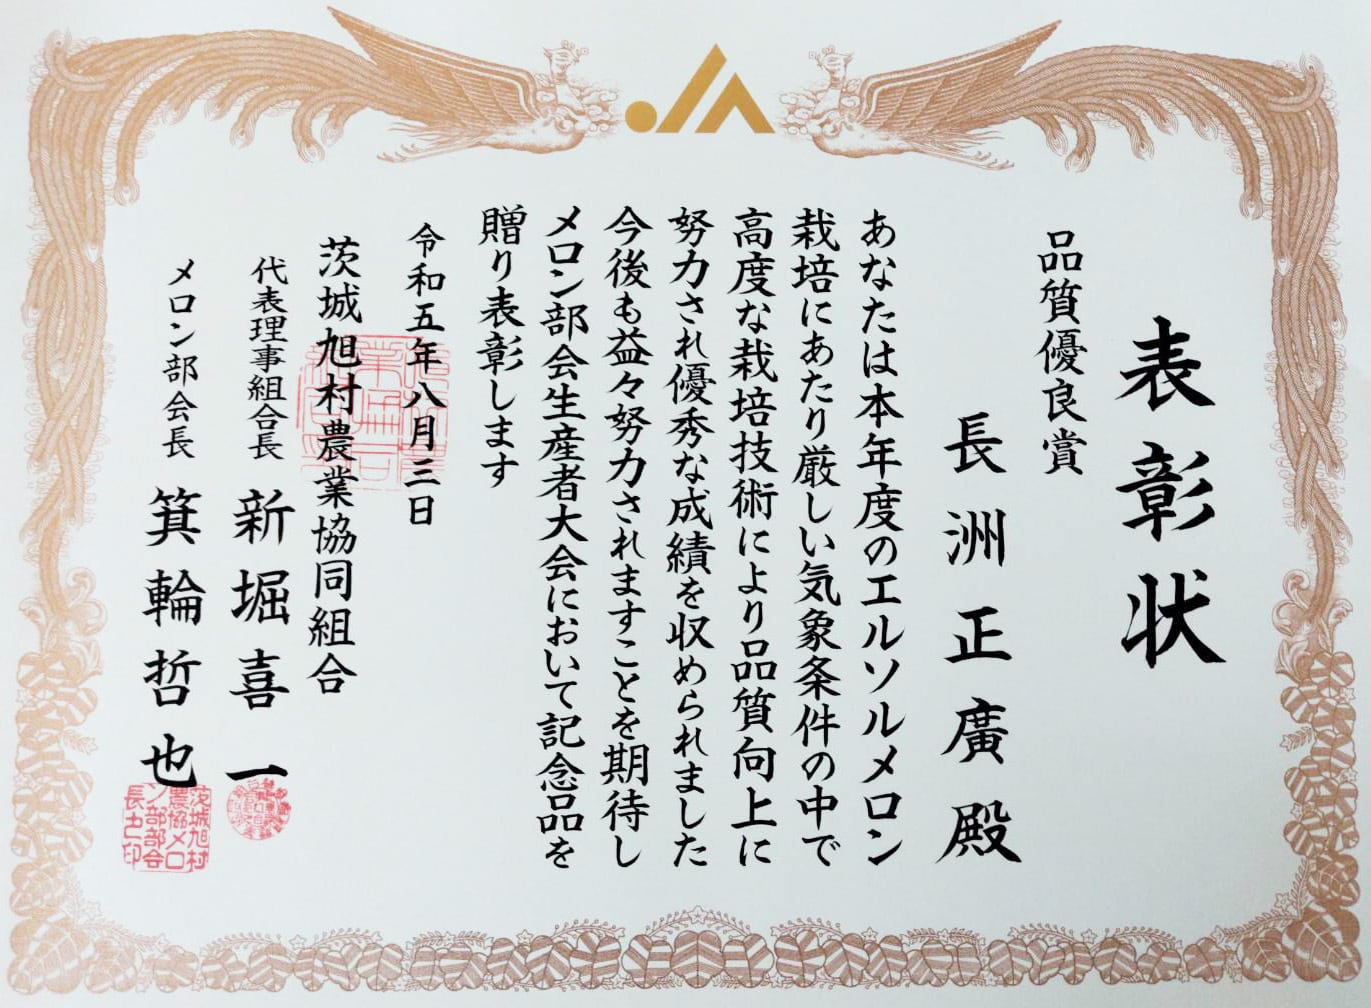 表彰状
品質優良賞
長洲正廣殿
あなたは本年度のエルソルメロン
栽培にあたり厳しい気象条件の中で
高度な栽培技術により品質向上に
努力され優秀な成績を収められました
今後も益々努力されますことを期待し
メロン部会生産者大会において記念品を
贈り表彰します
令和五年八月三日
茨城旭村農業協同組合
代表理事組合長 新堀喜一
メロン部会長 箕輪哲也
茨城旭村
農協メロ
ン部部会
長之印